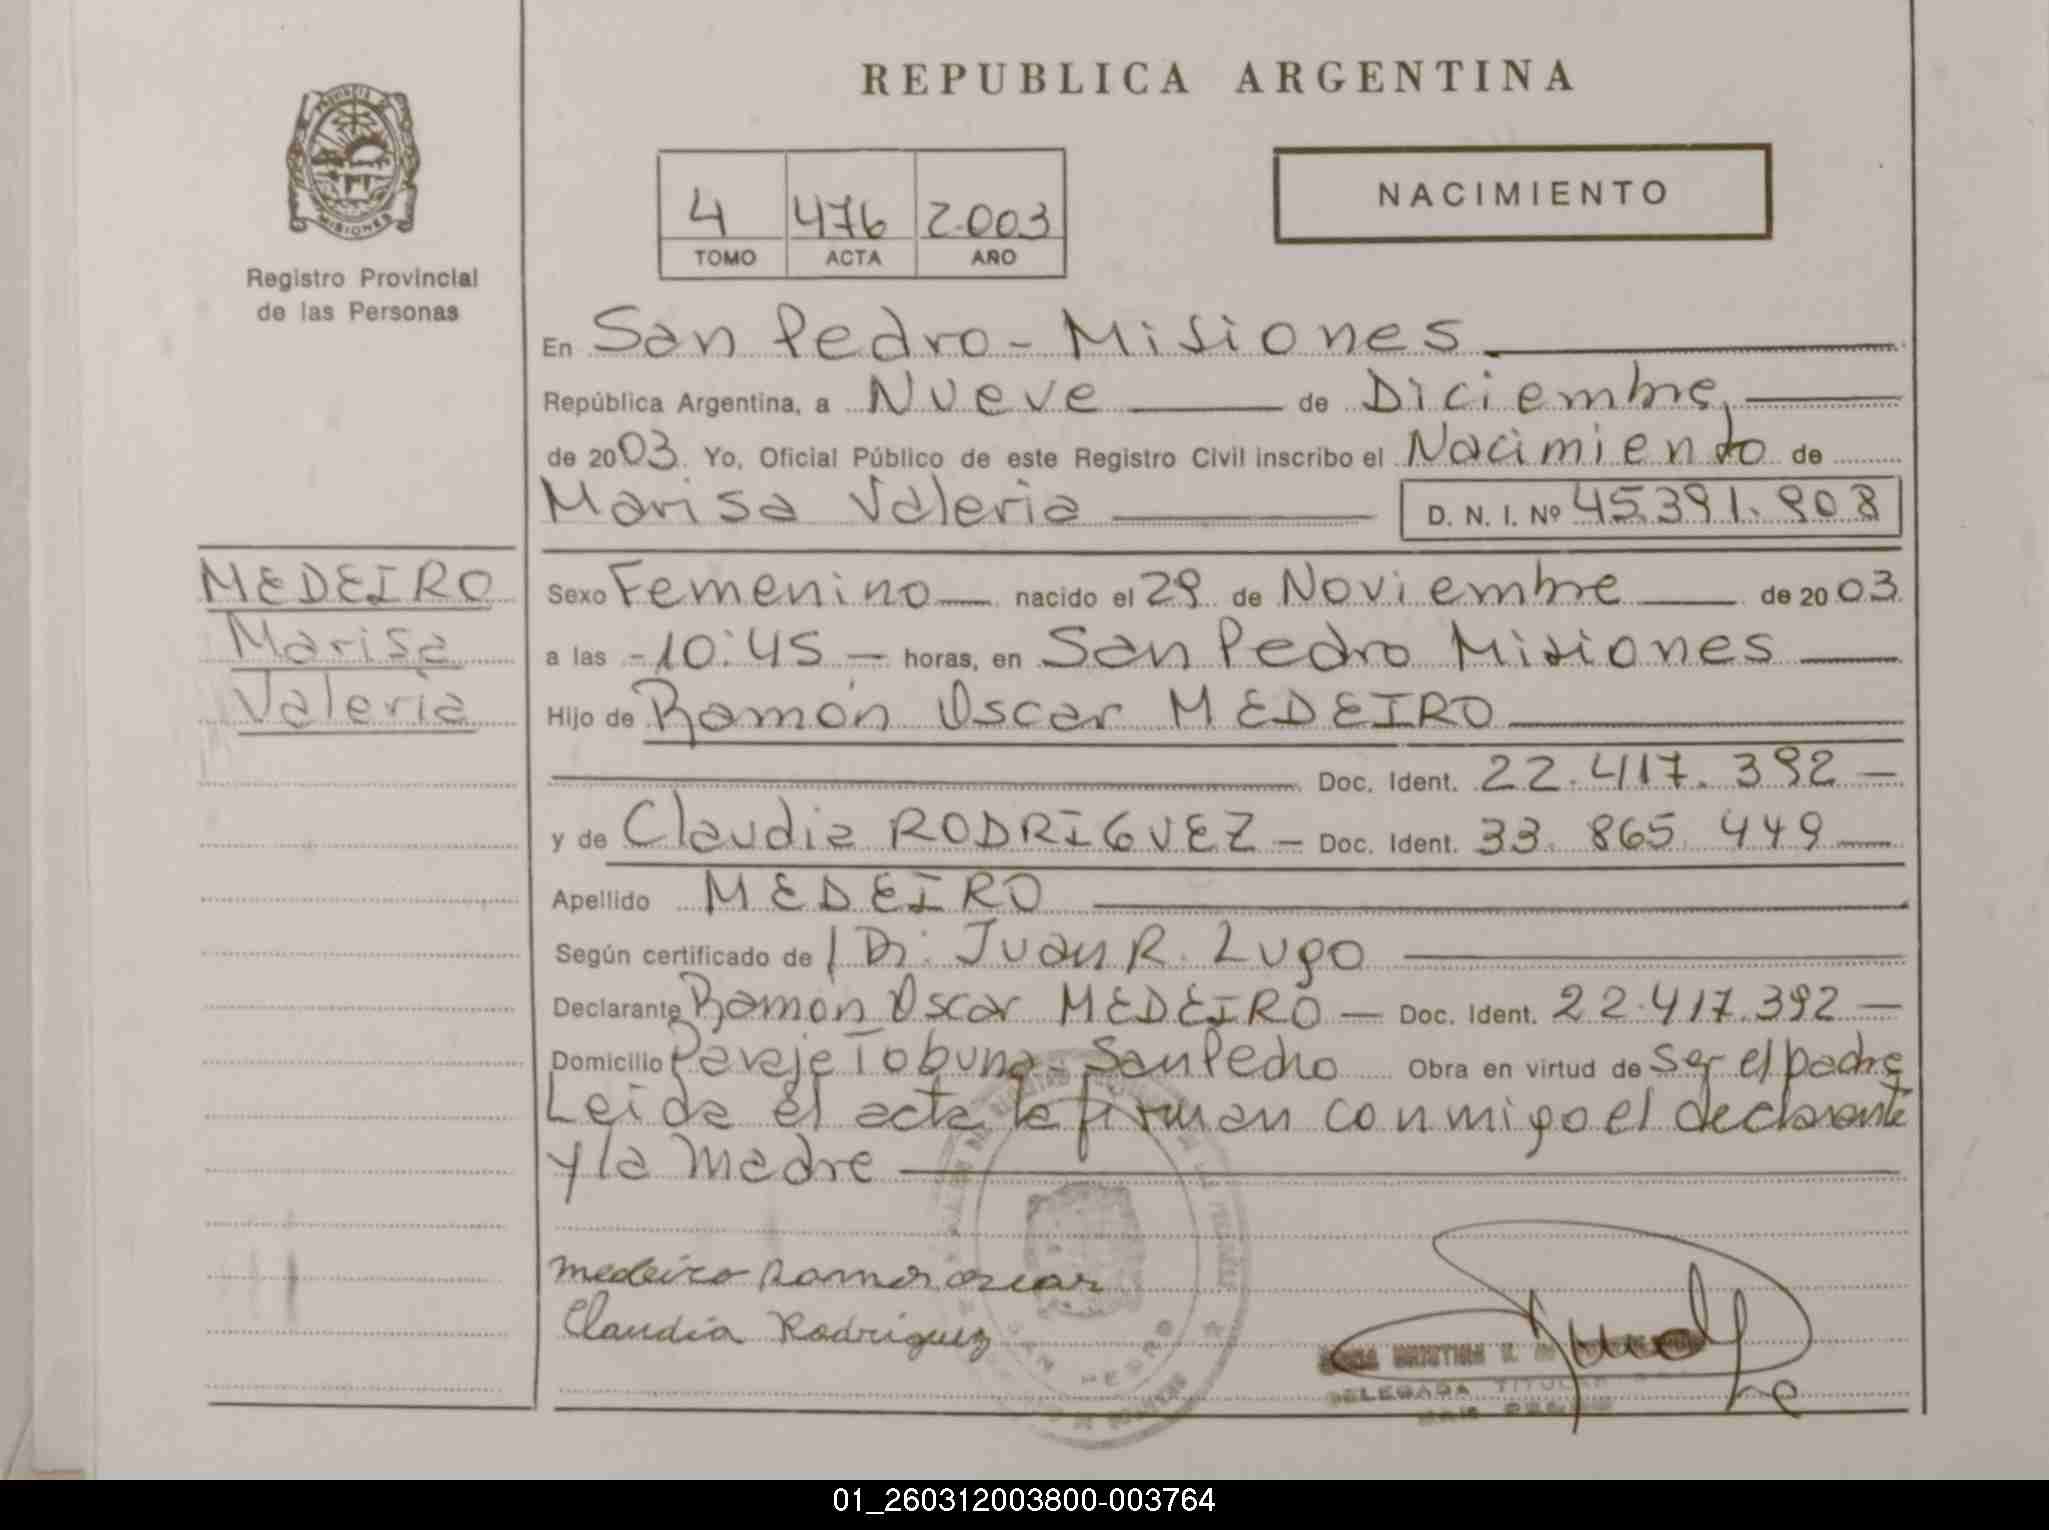 REPUBLICA ARGENTINA
PROVINCIA DE MISIONES
Registro Provincial
de las Personas
NACIMIENTO
4 476 2.003
TOMO ACTA AÑO
En San Pedro - Misiones
República Argentina, a Nueve de Diciembre,
de 2003. Yo, Oficial Público de este Registro Civil inscribo el Nacimiento de
Marisa Valeria D. N. I. Nº 45.391.908
MEDEIRO
Marisa
Valeria
Sexo Femenino nacido el 29 de Noviembre de 2003
a las - 10:45 - horas, en San Pedro Misiones
Hijo de Ramón Oscar MEDEIRO
Doc. Ident. 22.417.392 -
y de Claudia RODRIGUEZ - Doc. Ident. 33.865.449
Apellido MEDEIRO
Según certificado de / Dr. Juan R. Lugo
Declarante Ramón Oscar MEDEIRO - Doc. Ident. 22.417.392 -
Domicilio Paraje Tobuna - San Pedro Obra en virtud de ser el padre
Leida el acta la firman conmigo el declarante
y la madre
medeiro Ramon oscar
Claudia Rodriguez
SAN PEDRO
DELEGADA TITULAR
SAN PEDRO
01_260312003800-003764